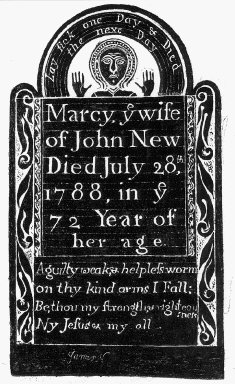 Lay sick one Day & Died
the next Day
Marcy, ẙ wife
of John New
Died July 28th,
1788, in ẙ
72 Year of
her age
A guilty weak & helpless worm
on thy kind arms I Fall;
Be thou my strength & righteous
ness
My Jesus & my all